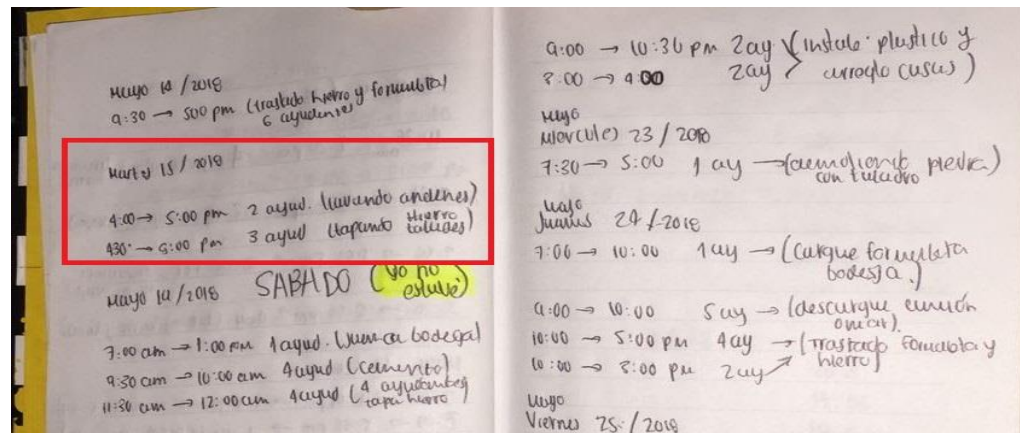 Mayo 14 / 2018
9:30 → 5:00 pm (traslado hierro y formaleta)
6 ayudantes
Martes 15 / 2018
4:00 → 5:00 pm 2 ayud. (lavando andenes)
4:30 → 5:00 pm 3 ayud (tapando Hierro taludes)
Mayo 19 / 2018 SABADO (yo no estuve)
7:00 am → 1:00 pm 1 ayud. (bodega)
9:30 am → 10:00 am 4 ayud (cemento)
11:30 am → 12:00 am 4 ayud (4 ayudantes tapa hierro)
9:00 → 10:30 pm 2 ay (instale plastico y
8:00 → 9:00 2 ay arreglo casas)
Mayo
Miercules 23 / 2018
7:30 → 5:00 1 ay → (demoliendo piedra)
con taladro
Mayo
Jueves 24 / 2018
7:00 → 10:00 1 ay → (Cargue formaleta
bodega.)
9:00 → 10:00 5 ay → (descargue camión
).
10:00 → 5:00 pm 4 ay → (Trastado formaleta y
10:00 → 3:00 pm 2 ay hierro)
Mayo
Viernes 25 / 2018